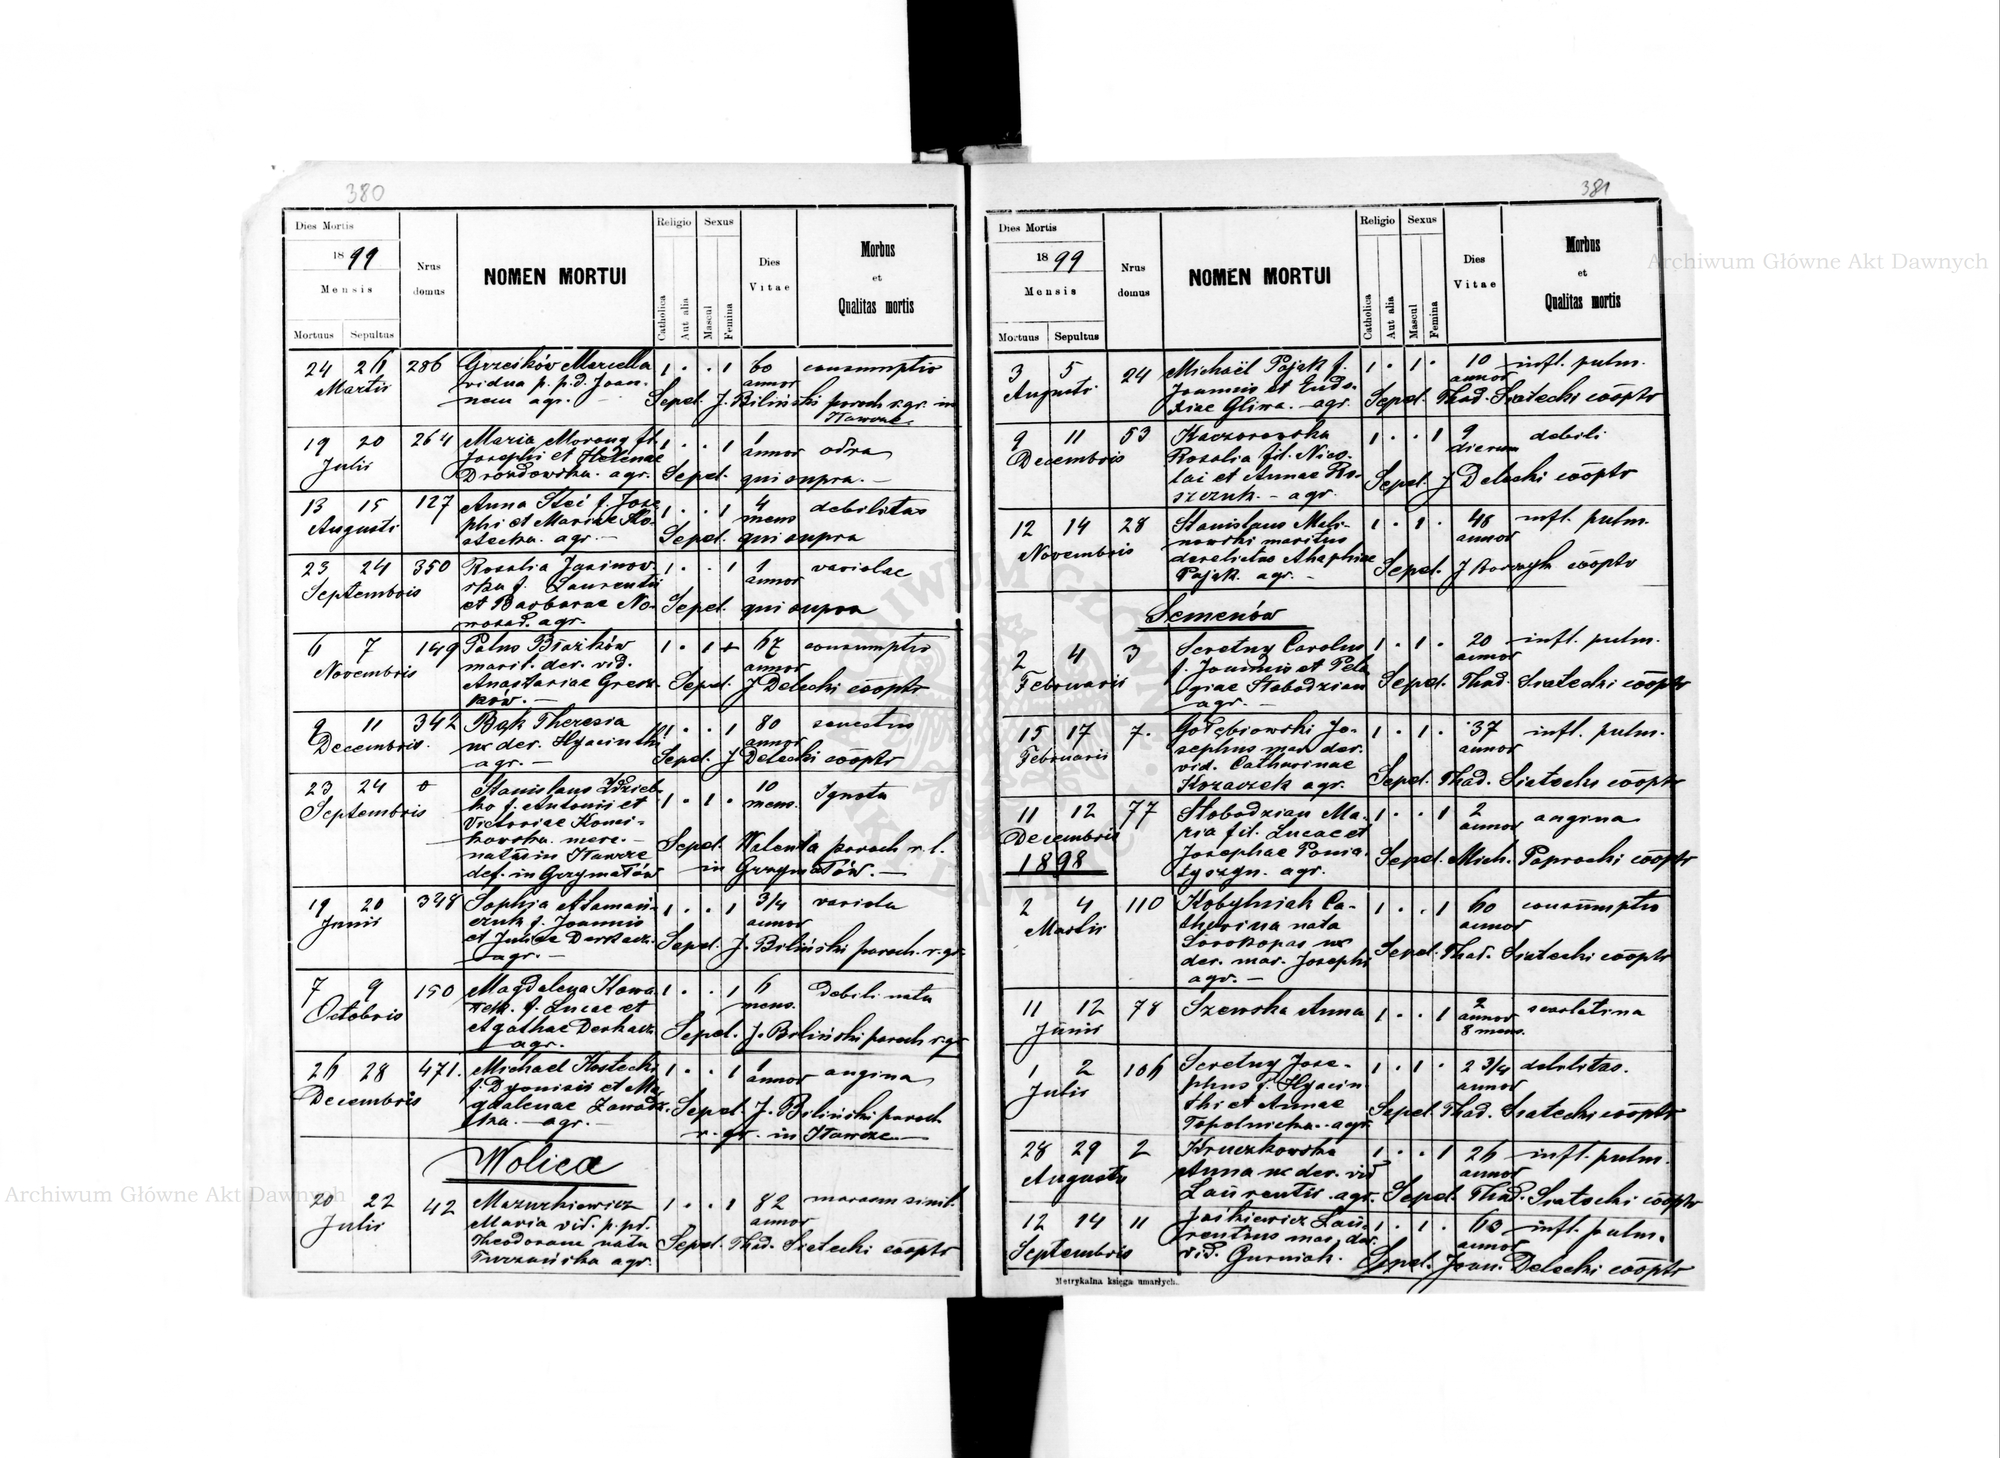 380
Dies Mortis
1899
Mensis
Mortuus Sepultus
Nrus domus
NOMEN MORTUI
Religio
Catholica
Aut alia
Sexus
Mascul
Femina
Dies Vitae
Morbus
et
Qualitas mortis
24 26 286 Grześków Marcella 1 . . 1 60 consumptio
Martii vidua p. p. d. Joan- annor
nem agr. Sepel. J. Biliński paroch r. gr. in
19 20 264 Maria Morong f. 1 . . 1 1 odra
Julii Josephi et Helenae annor
Drozdowska. agr. Sepel. qui supra.
13 15 127 Anna Steć f. Jose- 1 . . 1 4 debilitas
Augusti phi et Mariae Ko- mens
stecka. agr. Sepel. qui supra
23 24 350 Rosalia Jasinow- 1 . . 1 1 variolae
Septembris ska f. Laurentii annor
et Barbarae No- Sepel. qui supra
wosad. agr.
6 7 149 1 . 1 67 consumptio
Novembris marit. der. vid. annor
Anastasiae Gresz- Sepel. J Delecki cooptr
ków.
9 11 342 Bąk Theresia 1 . . 1 80 senectus
Decembris. ux der. Hyacinthi annor
agr. Sepel. J Delecki cooptr
23 24 0 Stanislaus 10 Ignota
Septembris ko f. Antonii et 1 . 1 . mens.
Victoriae
mere.
Sepel. Walenta paroch r. l.
def. in Grzymałów in Grzymałów.
19 20 348 Sophia Ataman- 1 . . 1 3/4 variola
Junii czuk f. Joannis annor
et Juliae Derkacz. Sepel. J. Biliński paroch. r. gr.
agr.
7 9 150 Magdalena 1 . . 1 6 Debili nata
Octobris f. Lucae et mens.
Agathae Derkacz Sepel. J. Biliński paroch r. gr
agr.
26 28 471. Michael Kostecki 1 . . 1 1 angina
Decembris f. Dyonisii et Ma- annor
gdalenae Zawadz- Sepel. J. Biliński paroch
ka. agr. r. gr. in
Wolica
20 22 42 Mazurkiewicz 1 . . 1 82 marasm. senil.
Julii Maria vid. p. pd. annor
Theodorum nata Sepel. Thad. Siatecki cooptr
Turzańska agr.
381
Dies Mortis
1899
Mensis
Mortuus Sepultus
Nrus domus
NOMEN MORTUI
Religio
Catholica
Aut alia
Sexus
Mascul
Femina
Dies Vitae
Morbus
et
Qualitas mortis
3 5 24 Michaël Pająk f. 1 . 1 . 10 infl. pulm.
Augusti Joannis et Eudo- annor
xiae Gliwa. agr. Sepel. Thad. Siatecki cooptr
9 11 53 Kaczorowska 1 . . 1 9 debili
Decembris Rosalia fil. Nico- dierum
lai et Annae Ro- Sepel. J Delecki cooptr
szczuk. agr.
12 14 28 Stanislaus Mali- 1 . 1 . 48 infl. pulm.
Novembris nowski maritus annor
derelictae Ahaphiae Sepel. J cooptr
Pająk. agr.
Semenów
2 4 3 Seretny Carolus 1 . 1 . 20 infl. pulm.
Februarii f. Joannis et Pela- annor
giae Słobodzian Sepel. Thad. Siatecki cooptr
agr.
15 17 7. Gołębiowski Jo- 1 . 1 . 37 infl. pulm.
Februarii sephus mar. der. annor
vid. Catharinae
Kozaczek agr. Sepel. Thad. Siatecki cooptr
11 12 77 Słobodzian Ma- 1 . . 1 2 angina
Decembris ria fil. Lucae et annor
1898 Josephae Ponia- Sepel. Mich. Paprocki cooptr
agr.
2 4 110 Kobylniak Ca- 1 . . 1 60 consumptio
Martii tharina nata annor
Sorokopas ux Sepel. Thad. Siatecki cooptr
der. mar. Josephi
agr.
11 12 78 Szewska Anna 1 . . 1 2 scarlatina
Junii annor
8 mens.
1 2 106 Seretny Jose- 1 . 1 . 2 3/4 debilitas.
Julii phus f. Hyacin annor
thi et Annae Sepel. Thad. Siatecki cooptr
Topolnicka. agr.
28 29 2 Kruczkowska 1 . . 1 26 infl. pulm.
Augusti Anna ux der. vid annor
Laurentii. agr. Sepel. Thad. Siatecki cooptr
12 14 11 Jaśkiewicz Lau- 1 . 1 . 63 infl. pulm.
Septembris rentius mar. der. annor
vid. Gurniak. Sepel. Joan. Delecki cooptr
Metrykalna księga umarłych.
Archiwum Główne Akt Dawnych
Archiwum Główne Akt Dawnych